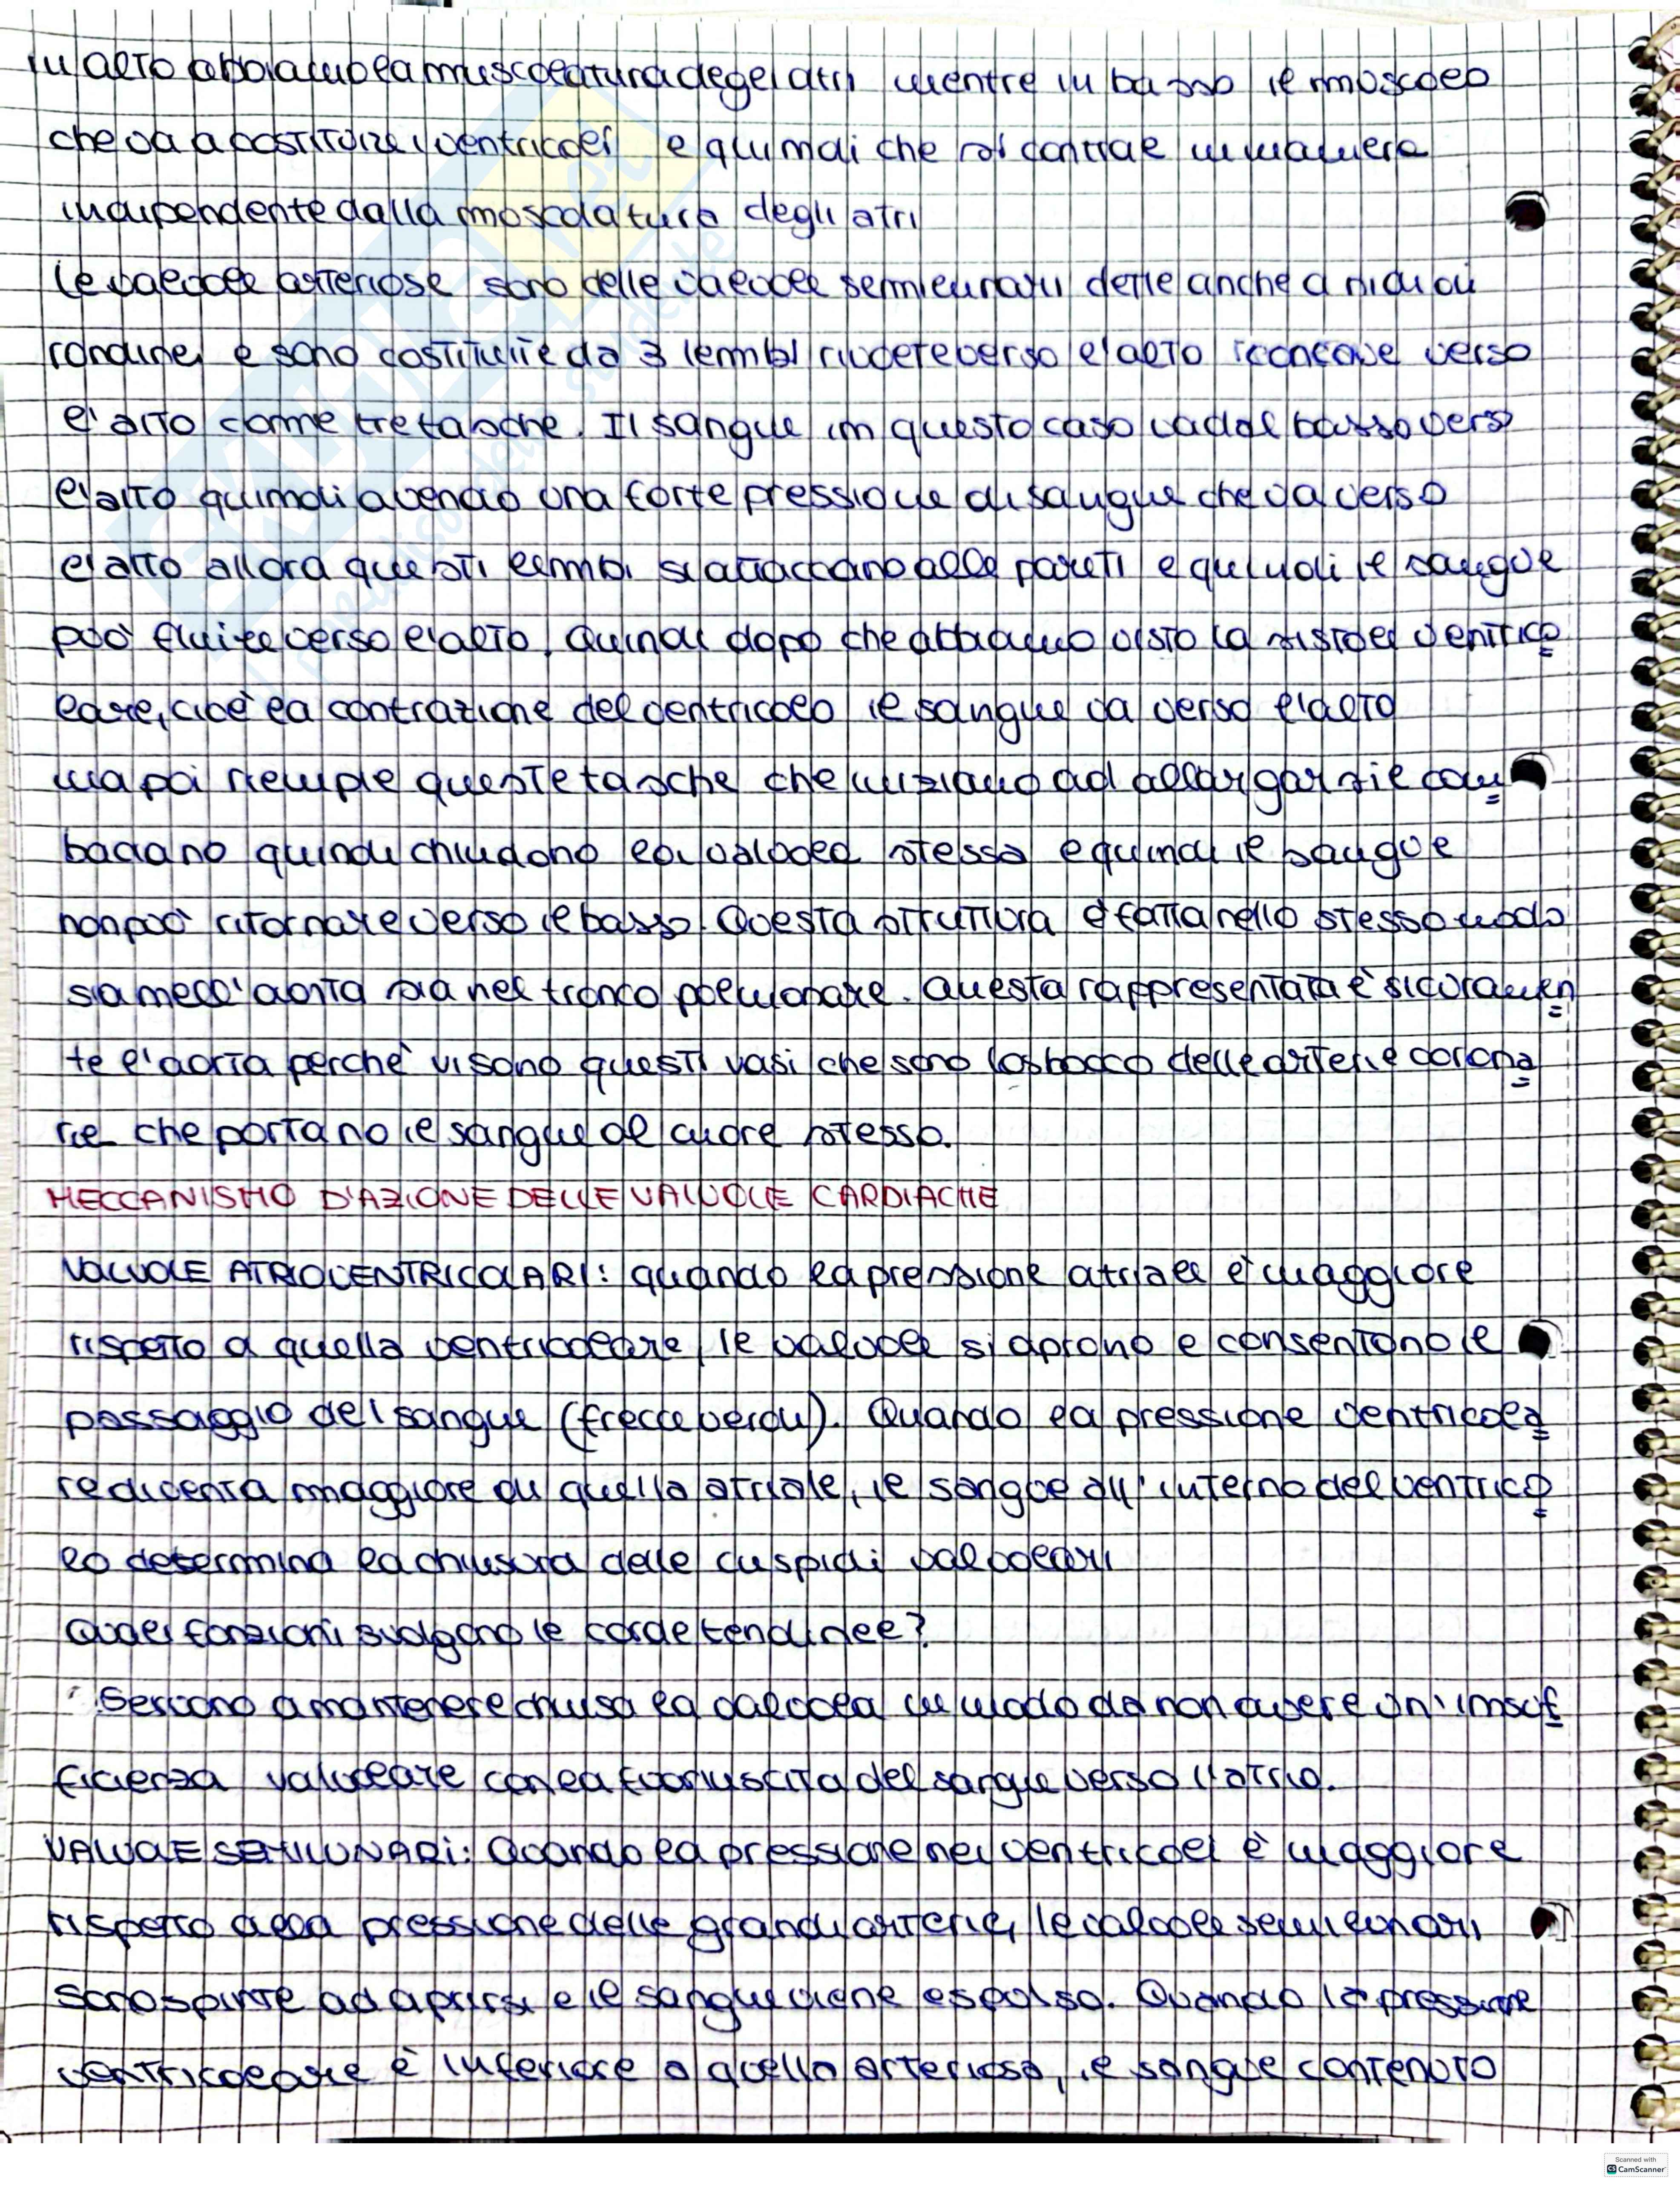 in alto abbiamo la muscolatura degli atri mentre in basso il muscolo
che va a costituire i ventricoli e quindi che si contrae in maniera
indipendente dalla muscolatura degli atri
Le valvole arteriose sono delle valvole semilunari dette anche a nidi di
rondine, e sono costituite da 3 lembi rivolte verso l'alto concave verso
l'alto come tre tasche. Il sangue in questo caso va dal basso verso
l'alto quindi avendo una forte pressione di sangue che va verso
l'alto allora questi lembi si attaccano alle pareti e quindi il sangue
può fluire verso l'alto. Quindi dopo che abbiamo visto la sistole ventrico
lare, cioè la contrazione del ventricolo il sangue va verso l'alto
ma poi riempie queste tasche che iniziano ad allargarsi e com
baciano quindi chiudono la valvola stessa e quindi il sangue
non può ritornare verso il basso. Questa struttura è fatta nello stesso modo
sia nell'aorta sia nel tronco polmonare. Questa rappresentata è sicuramen
te l'aorta perchè vi sono questi vasi che sono lo sbocco delle arterie corona
rie che portano il sangue al cuore stesso.
MECCANISMO D'AZIONE DELLE VALVOLE CARDIACHE
VALVOLE ATRIOVENTRICOLARI: quando la pressione atriale è maggiore
rispetto a quella ventricolare, le valvole si aprono e consentono il
passaggio del sangue (frecce verdi). Quando la pressione ventricola
re diventa maggiore di quella atriale, il sangue all'interno del ventrico
lo determina la chiusura delle cuspidi valvolari
Quali funzioni svolgono le corde tendinee?
Servono a mantenere chiusa la valvola in modo da non avere un'insuf
ficienza valvolare con la fuoriuscita del sangue verso l'atrio.
VALVOLE SEMILUNARI: Quando la pressione nei ventricoli è maggiore
rispetto alla pressione delle grandi arterie, le valvole semilunari
sono spinte ad aprirsi e il sangue viene espulso. Quando la pressione
ventricolare è inferiore a quella arteriosa, il sangue contenuto
Scanned with
CamScanner